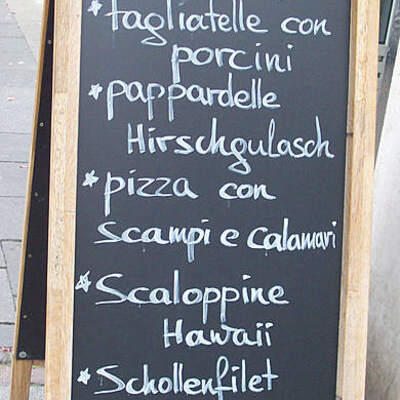 *tagliatelle con
porcini
*pappardelle
Hirschgulasch
*pizza con
scampi e calamari
*Scaloppine
Hawaii
*Schollenfilet